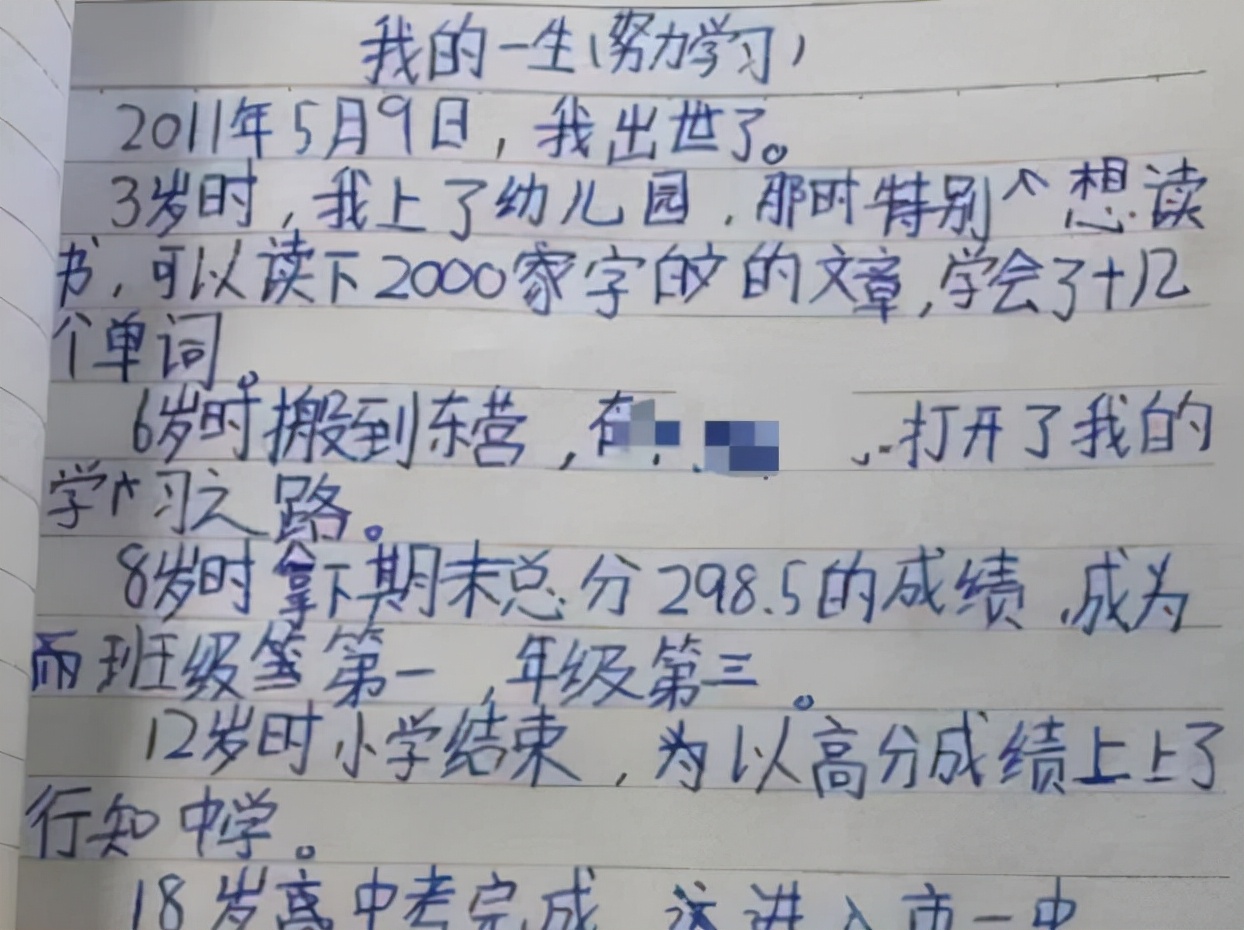 我的一生（努力学习）
2011年5月9日，我出世了。
3岁时，我上了幼儿园，那时特别想读
书，可以读下2000家字的文章，学会了十几
个单词。
6岁时搬到东营，有 打开了我的
学习之路。
8岁时拿下期末总分298.5的成绩，成为
班级第一，年级第三。
12岁时小学结束，为以高分成绩上上了
行知中学。
18岁高中考完成 进入市一中